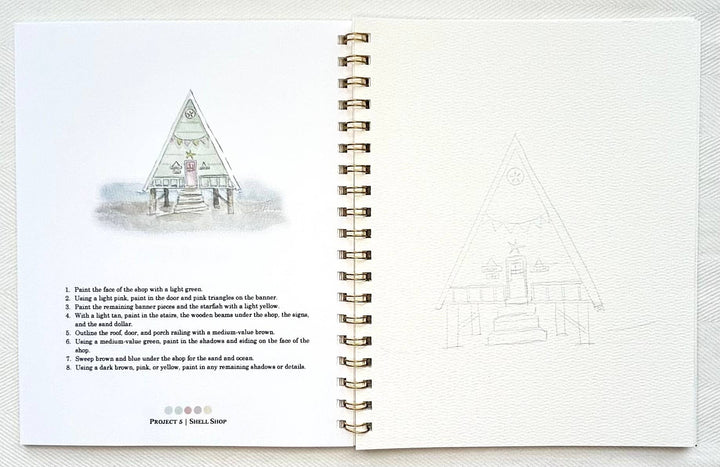 1. Paint the face of the shop with a light green.
2. Using a light pink, paint in the door and pink triangles on the banner.
3. Paint the remaining banner pieces and the starfish with a light yellow.
4. With a light tan, paint in the stairs, the wooden beams under the shop, the signs,
and the sand dollar.
5. Outline the roof, door, and porch railing with a medium-value brown.
6. Using a medium-value green, paint in the shadows and siding on the face of the
shop.
7. Sweep brown and blue under the shop for the sand and ocean.
8. Using a dark brown, pink, or yellow, paint in any remaining shadows or details.
Project 5 | Shell Shop